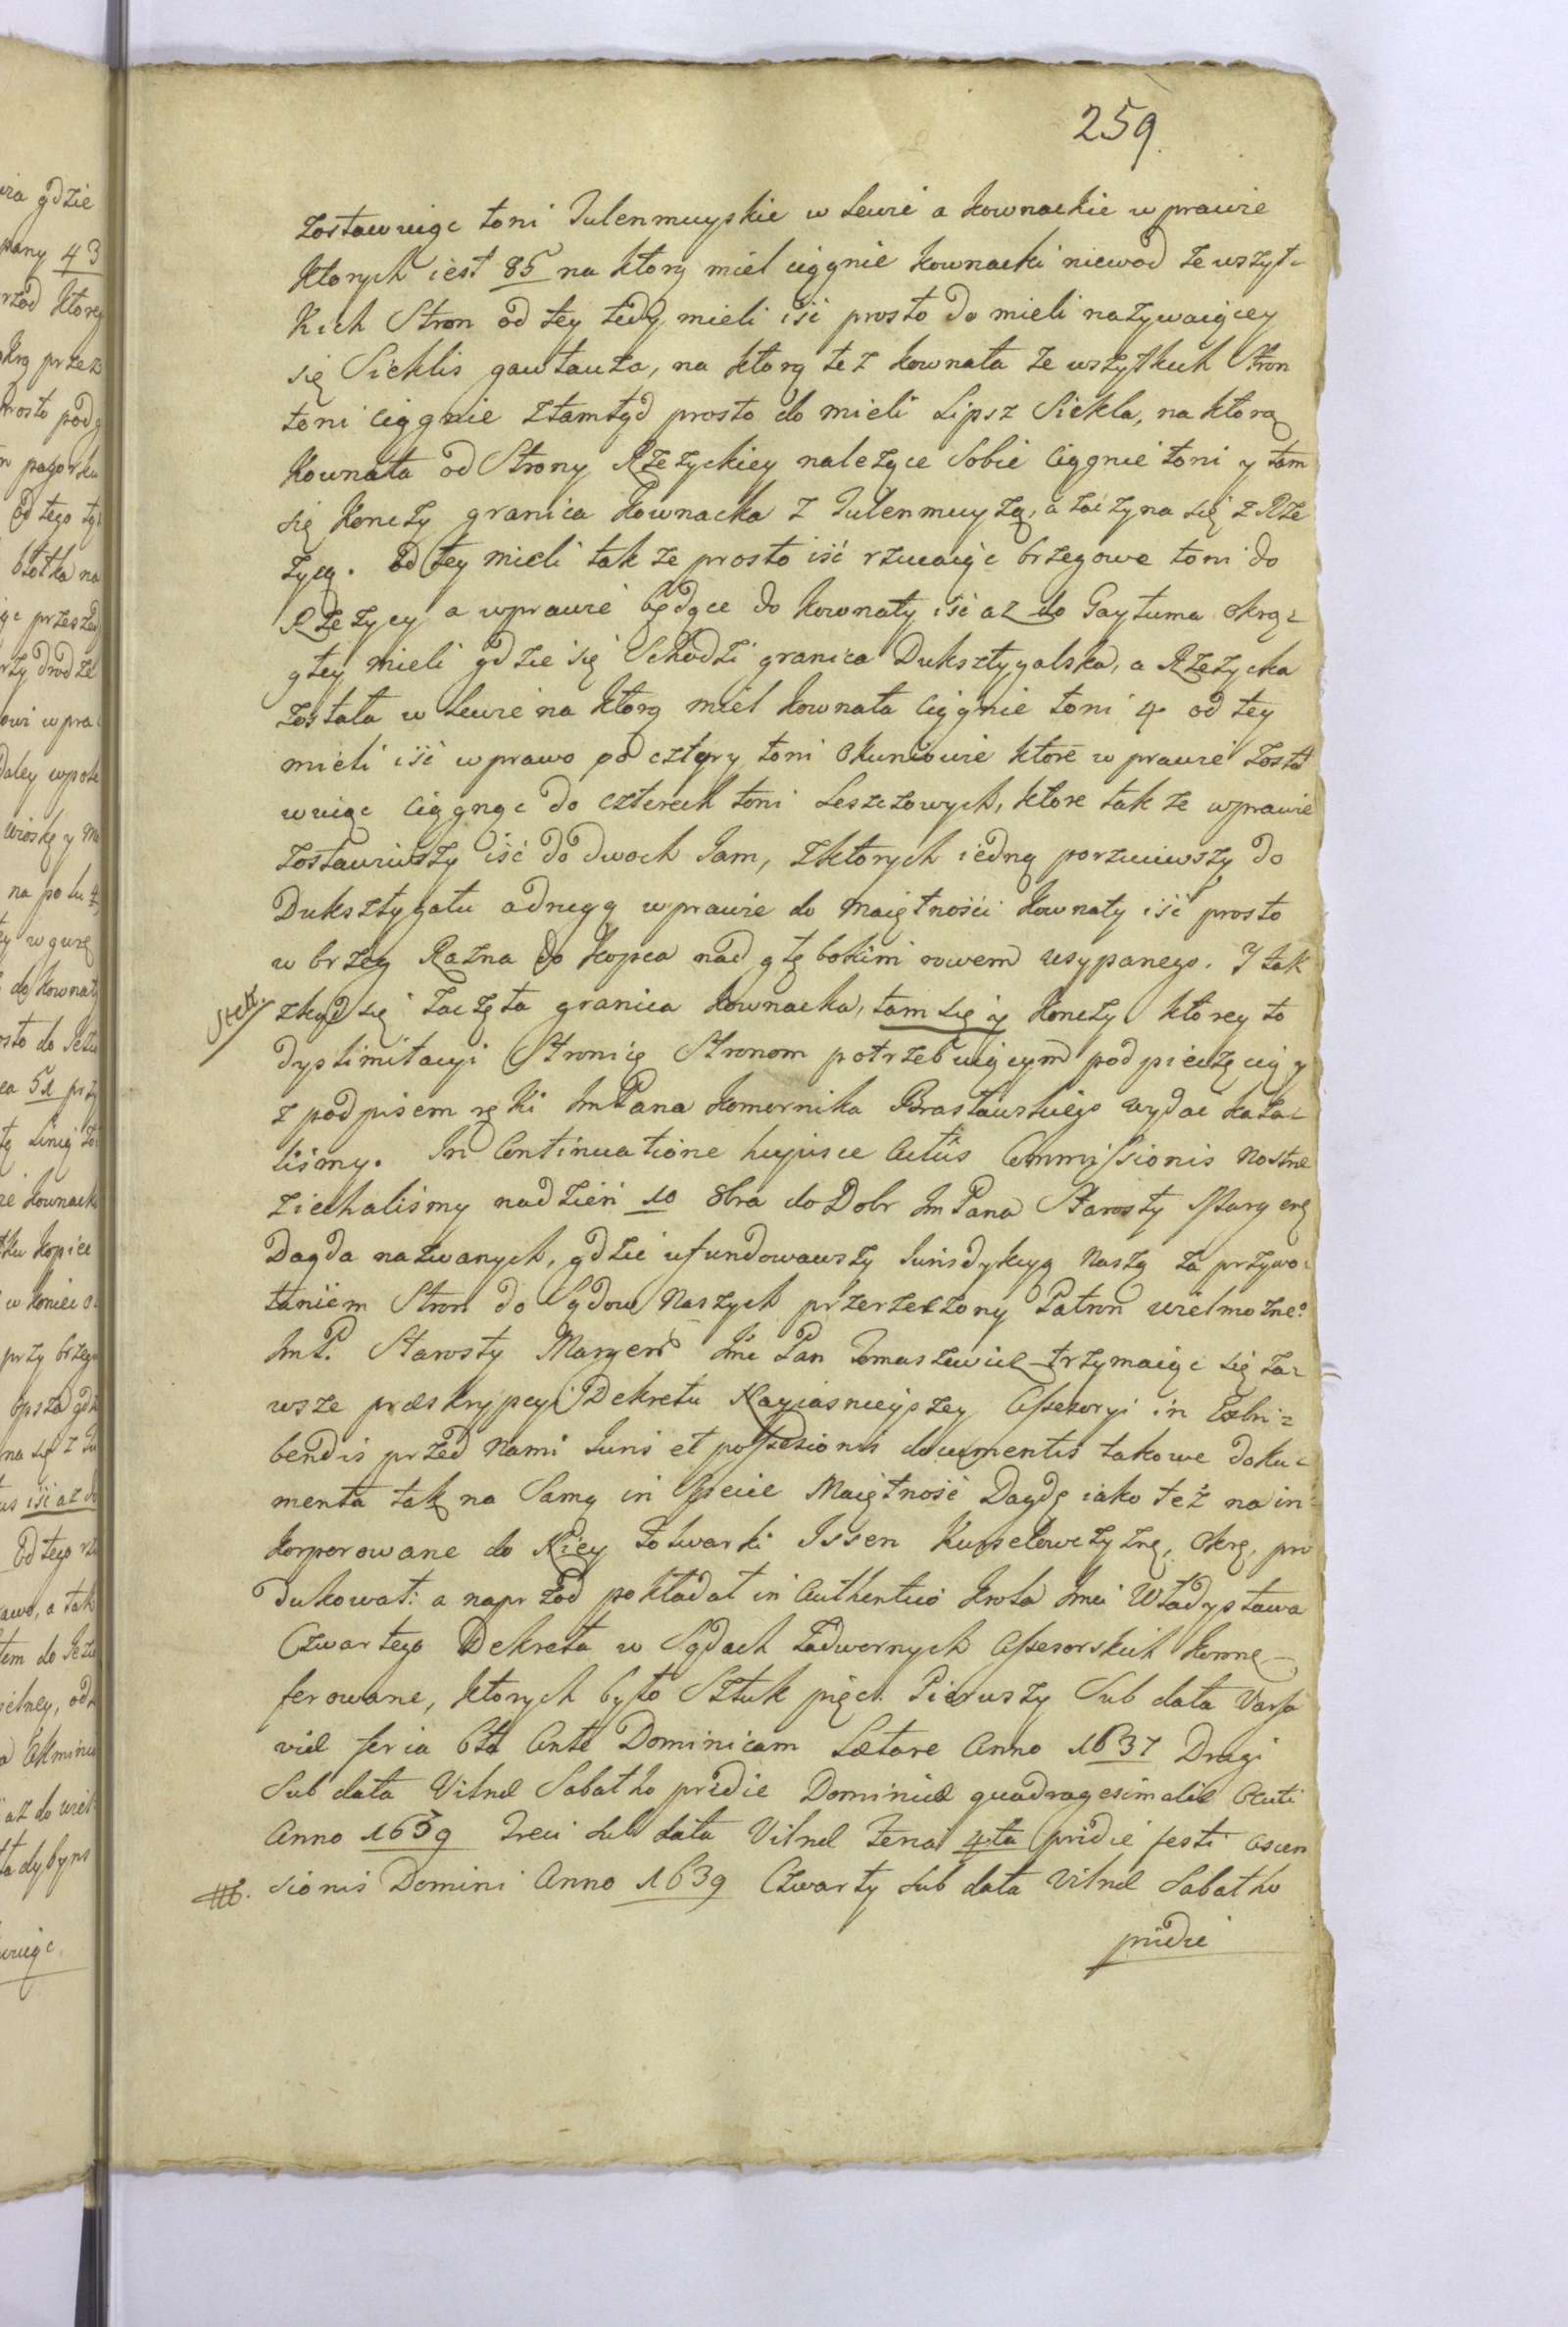 259.
zostawuiąc toni Tulenmuyskie w Lewie a Kownackie w prawie
ktorych iest 85 na ktorą miel ciągnie Kownacki niewod ze wszyt-
kich Stron od tey tedy mieli iść prosto do mieli nazywaiącey
się Sieklis gawtauża, na ktorą też Kownata ze wszytkich Stron
toni ciągnie ztamtąd prosto do mieli Lipsz Siekla, na ktorą
Kownata od Strony Rzeżyckiey należące Sobie ciągnie toni y tam
się konczy granica Kownacka z Tulenmuyżą, a zaczyna się z Rze
życą. od tey mieli także prosto iść rzucaiąc brzegowe toni do
Rzeżycy a wprawie będące do Kownaty iść az do Gaytuma okrą-
głey mieli gdzie się Schodzi granica Duksztygalska, a Rzeżycka
została w Lewie na ktorą miel Kownata ciągnie toni 4 od tey
mieli iść w prawo pod cztyry toni Okuniowie ktore w prawie zosta
wuiąc ciągnąc do czterech toni Leszczowych, ktore także wprawie
zostawiwszy iść do dwoch Jam, z ktorych iedną porzuciwszy do
Duksztygału a drugą w prawie do Maiętności Kownaty iść prosto
w brzeg Razna do Kopca nad głębokim rowem usypanego. I tak
zkąd się zaczęła granica Kownacka, tam się y konczy ktorey to
dyslimitacyi Stronie Stronom potrzebuiącym pod pieczęcią y
z podpisem ręki ImPana Komornika Brasławskiego wydać kaza-
liśmy. In Continuatione hujusce Actus Commissionis Nostræ
ziechaliśmy na dzień 10 8bra do Dobr ImPana Starosty Margen
Dagda nazwanych, gdzie ufundowawszy Jurisdykcyą Naszą za przywo-
łaniem Stron do Sądow Naszych przerzeczony Patron wielmożne°
ImP. Starosty Margen Imć Pan Tomaszewicz trzymaiąc się za-
wsze præskrypcyi Dekretu Nayiasnieyszey Assesoryi in Exhi-
bendis przed Nami Juris et possesionis documentis takowe doku-
menta tak na Samą in Specie Maiętność Dagdę iako też na in-
korporowane do Niey Folwarki Issen Kupsełowczyznę, Okrę, pro
dukował: a naprzod pokładał in Authentico Krola Imci Władysława
Czwartego Dekreta w Sądach Zadwornych Assesorskich Koronne
ferowane, ktorych było Sztuk pięć. Pierwszy Sub data Varsa
viæ feria 6ta Ante Dominicam Lætare Anno 1637 Drugi
Sub data Vilnæ Sabatho pridie Dominicæ quadragesimalis Oculi
Anno 1639 Treci Sub data Vilnæ feria 4ta pridie festi Ascen
sionis Domini Anno 1639 Czwarty Sub data Vilnæ Sabatho
pridie